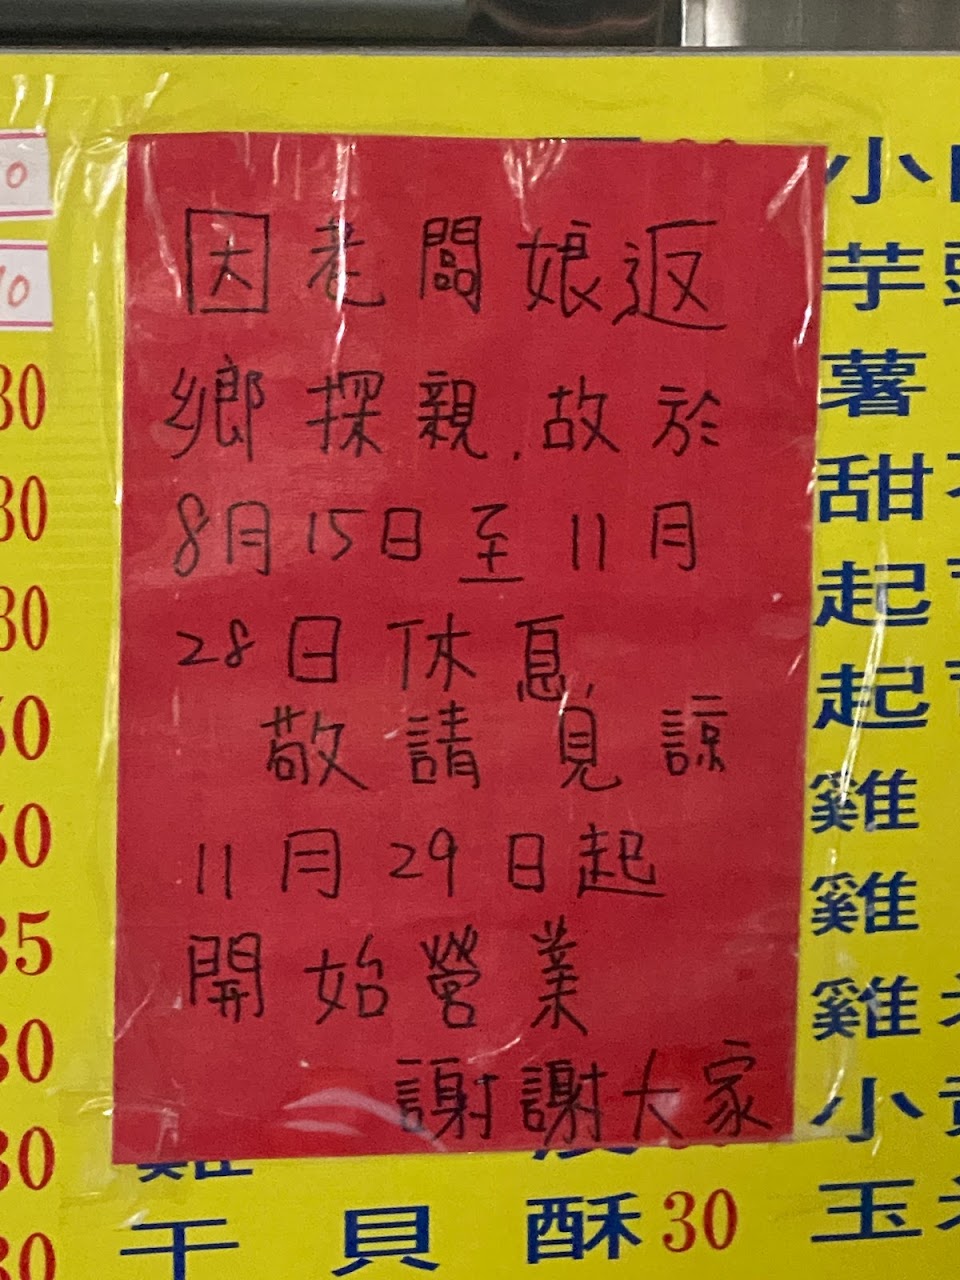 因老闆娘返
鄉探親.故於
8月15日至11月
28日休息,
敬請見諒
11月29日起
開始營業
謝謝大家
0
10
30
30
30
50
50
35
30
30
30
小
芋頭
薯
甜
起
起
雞
雞
雞
小黃
玉米
雞
干貝酥30